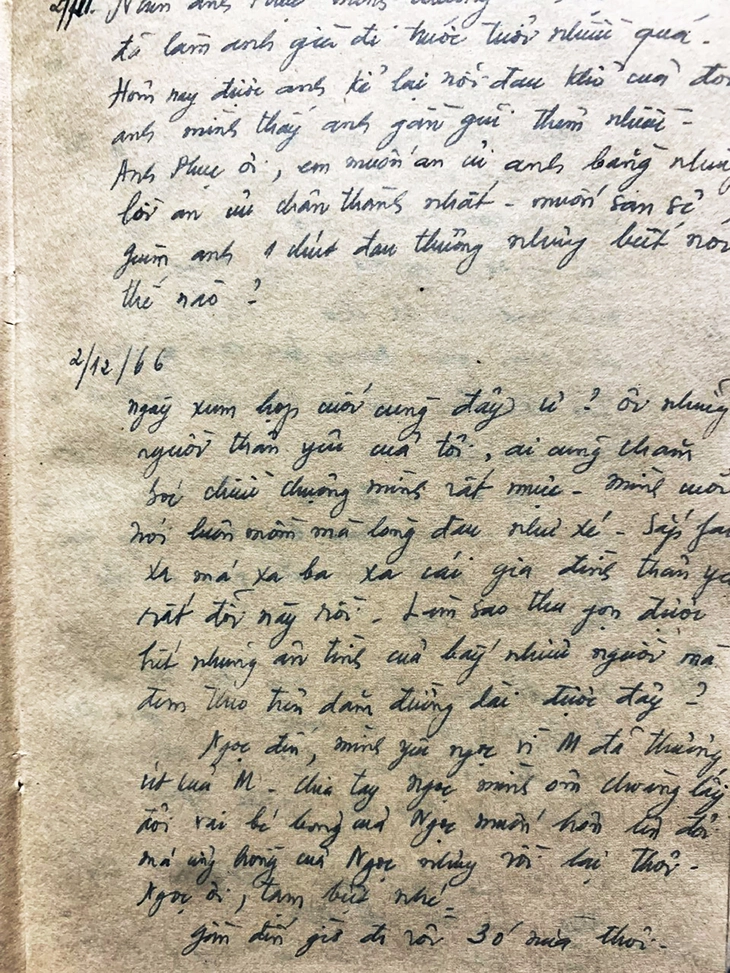 đã làm anh già đi trước tuổi nhiều quá.
Hôm nay được anh kể lại nỗi đau khổ của đời
anh mình thấy anh gần gũi thêm nhiều -
Anh Phúc ơi, em muốn an ủi anh bằng những
lời an ủi chân thành nhất - muốn san sẻ
giùm anh 1 chút đau thương nhưng biết nói
thế nào ?
2/12/66
ngày xum họp cuối cùng đây ư ? Ôi những
người thân yêu của tôi, ai cũng chăm
sóc chiều chuộng mình rất mực - mình cười
nói luôn mồm mà lòng đau như xé - Sắp
xa má xa ba xa cái gia đình thân yêu
rất đỗi này rồi - Làm sao thu gọn được
hết những ân tình của bấy nhiêu người mà
đem theo trên dặm đường dài được đây ?
Ngọc đến, mình yêu ngọc vì M đã thương
út của M - chia tay ngọc mình ôm choàng lấy
đôi vai bé bỏng của Ngọc muốn hôn lên đôi
má ửng hồng của Ngọc nhưng rồi lại thôi -
Ngọc ơi, tạm biệt nhé -
gần đến giờ đi rồi 30' nữa thôi -